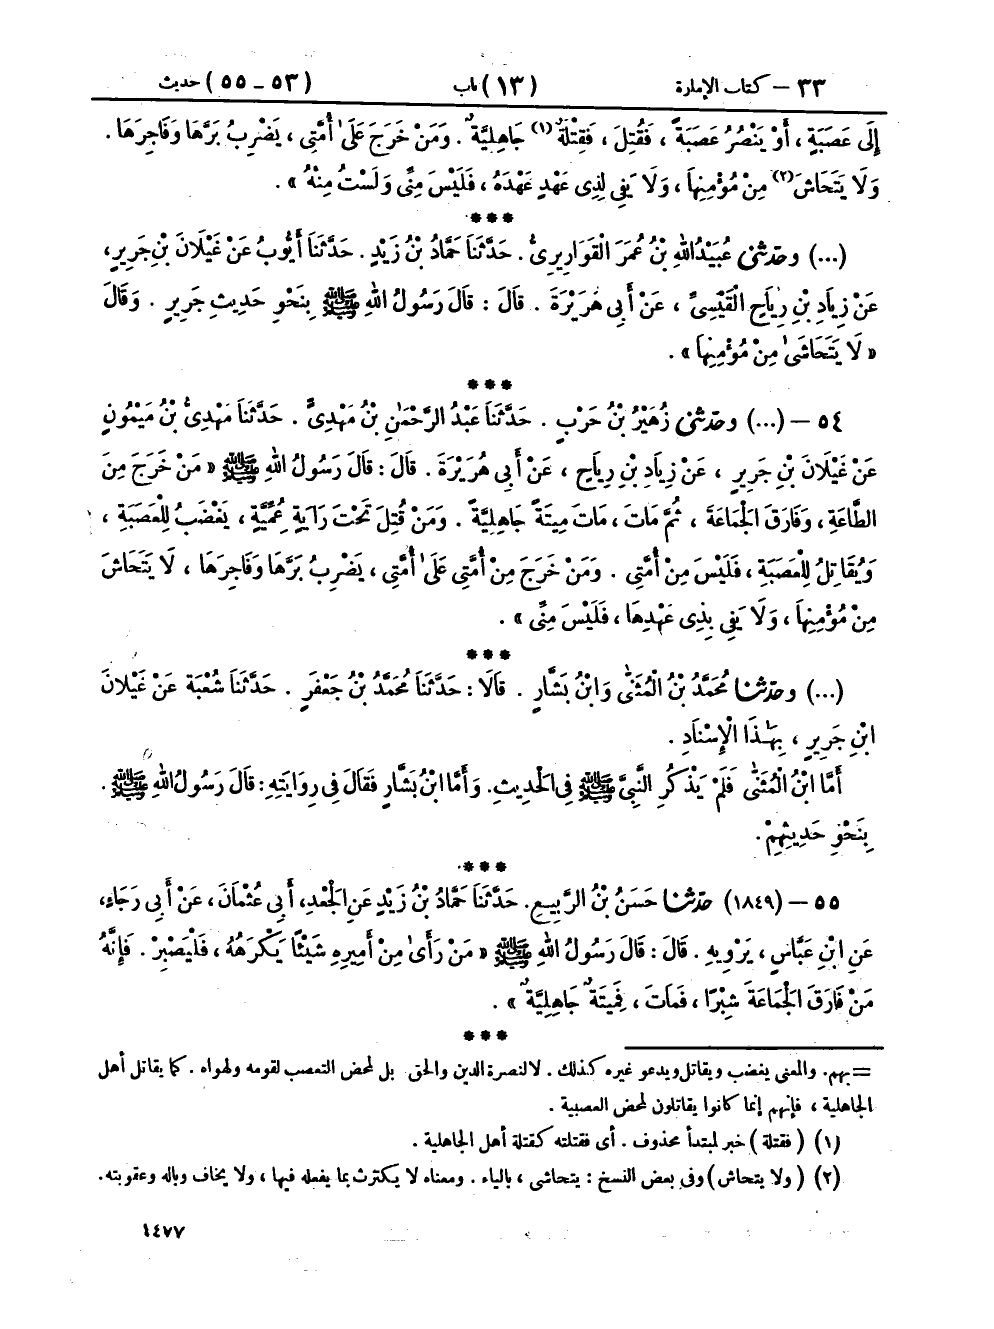 ٣٣ – كتاب الإمارة (١٣) باب (٥٣ – ٥٥) حديث
إِلَى عَصَبَةٍ ، أَوْ يَنْصُرُ عَصَبَةً ، فَقُتِلَ ، فَقِتْلَةٌ (١) جَاهِلِيَّةٌ . وَمَنْ خَرَجَ عَلَىٰ أُمَّتِى ، يَضْرِبُ بَرَّهَا وَفَاجِرَهَا .
وَلَا يَتَحَاشَ (٢) مِنْ مُؤْمِنِهَا ، وَلَا يَفِى لِذِى عَهْدٍ عَهْدَهُ ، فَلَيْسَ مِنِّى وَلَسْتُ مِنْهُ » .
***
(...) وحدّثنى عُبَيْدُ اللهِ بْنُ عُمَرَ الْقَوَارِيرِىُّ . حَدَّثَنَا حَمَّادُ بْنُ زَيْدٍ . حَدَّثَنَا أَيُّوبُ عَنْ غَيْلَانَ بْنِ جَرِيرٍ ،
عَنْ زِيَادِ بْنِ رِيَاحٍ الْقَيْسِىِّ ، عَنْ أَبِى هُرَيْرَةَ . قَالَ : قَالَ رَسُولُ اللهِ ﷺ بِنَحْوِ حَدِيثِ جَرِيرٍ . وَقَالَ
« لَا يَتَحَاشَىٰ مِنْ مُؤْمِنِهَا » .
***
٥٤ – (...) وحدّثنى زُهَيْرُ بْنُ حَرْبٍ . حَدَّثَنَا عَبْدُ الرَّحْمٰنِ بْنُ مَهْدِىٍّ . حَدَّثَنَا مَهْدِىُّ بْنُ مَيْمُونٍ
عَنْ غَيْلَانَ بْنِ جَرِيرٍ ، عَنْ زِيَادِ بْنِ رِيَاحٍ ، عَنْ أَبِى هُرَيْرَةَ . قَالَ : قَالَ رَسُولُ اللهِ ﷺ « مَنْ خَرَجَ مِنَ
الطَّاعَةِ ، وَفَارَقَ الْجَمَاعَةَ ، ثُمَّ مَاتَ ، مَاتَ مِيتَةً جَاهِلِيَّةً . وَمَنْ قُتِلَ تَحْتَ رَايَةٍ عِمِّيَّةٍ ، يَغْضَبُ لِلْعَصَبَةِ ،
وَيُقَاتِلُ لِلْعَصَبَةِ ، فَلَيْسَ مِنْ أُمَّتِى . وَمَنْ خَرَجَ مِنْ أُمَّتِى عَلَىٰ أُمَّتِى ، يَضْرِبُ بَرَّهَا وَفَاجِرَهَا ، لَا يَتَحَاشَ
مِنْ مُؤْمِنِهَا ، وَلَا يَفِى بِذِى عَهْدِهَا ، فَلَيْسَ مِنِّى » .
***
(...) وحدّثنا مُحَمَّدُ بْنُ الْمُثَنَّىٰ وَابْنُ بَشَّارٍ . قَالَا : حَدَّثَنَا مُحَمَّدُ بْنُ جَعْفَرٍ . حَدَّثَنَا شُعْبَةُ عَنْ غَيْلَانَ
ابْنِ جَرِيرٍ ، بِهَـٰذَا الْإِسْنَادِ .
أَمَّا ابْنُ الْمُثَنَّىٰ فَلَمْ يَذْكُرِ النَّبِىَّ ﷺ فِى الْحَدِيثِ . وَأَمَّا ابْنُ بَشَّارٍ فَقَالَ فِى رِوَايَتِهِ : قَالَ رَسُولُ اللهِ ﷺ .
بِنَحْوِ حَدِيثِهِمْ .
***
٥٥ – (١٨٤٩) حدّثنا حَسَنُ بْنُ الرَّبِيعِ . حَدَّثَنَا حَمَّادُ بْنُ زَيْدٍ عَنِ الْجَعْدِ ، أَبِى عُثْمَانَ ، عَنْ أَبِى رَجَاءٍ ،
عَنِ ابْنِ عَبَّاسٍ ، يَرْوِيهِ . قَالَ : قَالَ رَسُولُ اللهِ ﷺ « مَنْ رَأَىٰ مِنْ أَمِيرِهِ شَيْئًا يَكْرَهُهُ ، فَلْيَصْبِرْ . فَإِنَّهُ
مَنْ فَارَقَ الْجَمَاعَةَ شِبْرًا ، فَمَاتَ ، فَمِيتَةٌ جَاهِلِيَّةٌ » .
***
= بهم. والمعنى يغضب ويقاتل ويدعو غيره كذلك . لا لنصرة الدين والحق بل لمحض التعصب لقومه ولهواه . كما يقاتل أهل
الجاهلية ، فإنهم إنما كانوا يقاتلون لمحض العصبية .
(١) ( فقتلة ) خبر لمبتدأ محذوف . أى فقتلته كقتلة أهل الجاهلية .
(٢) ( ولا يتحاش ) وفى بعض النسخ : يتحاشى ، بالياء . ومعناه لا يكترث بما يفعله فيها ، ولا يخاف وباله وعقوبته.
١٤٧٧